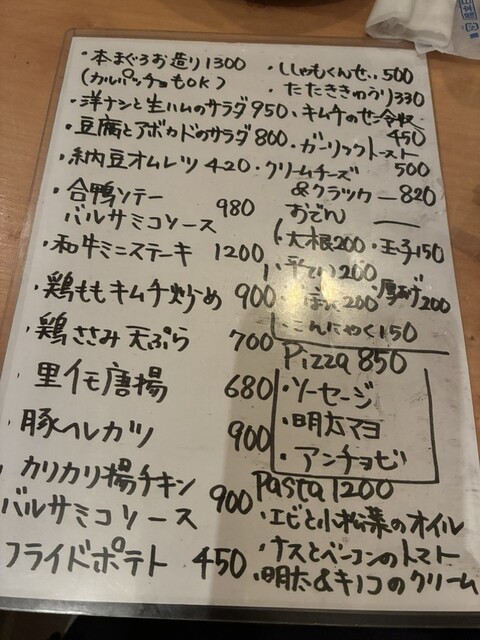 ・本まぐろお造り1300
(カルパッチョもOK)
・洋ナシと生ハムのサラダ950
・豆腐とアボカドのサラダ800
・納豆オムレツ420
・合鴨ソテー
バルサミコソース 980
・和牛ミニステーキ 1200
・鶏ももキムチ炒め 900
・鶏ささみ天ぷら 700
・里イモ唐揚 680
・豚ヘレカツ 900
・カリカリ揚チキン
バルサミコソース 900
フライドポテト 450
・ししゃもくんせい500
・たたききゅうり330
・キムチのせ冷奴
450
・ガーリックトースト
500
・クリームチーズ
&クラッカー820
おでん
・大根200・玉子150
・平てい200
200・厚あげ200
・こんにゃく150
Pizza 850
・ソーセージ
・明太マヨ
・アンチョビ
Pasta 1200
・エビと小松菜のオイル
・ナスとベーコンのトマト
・明太&キノコのクリーム